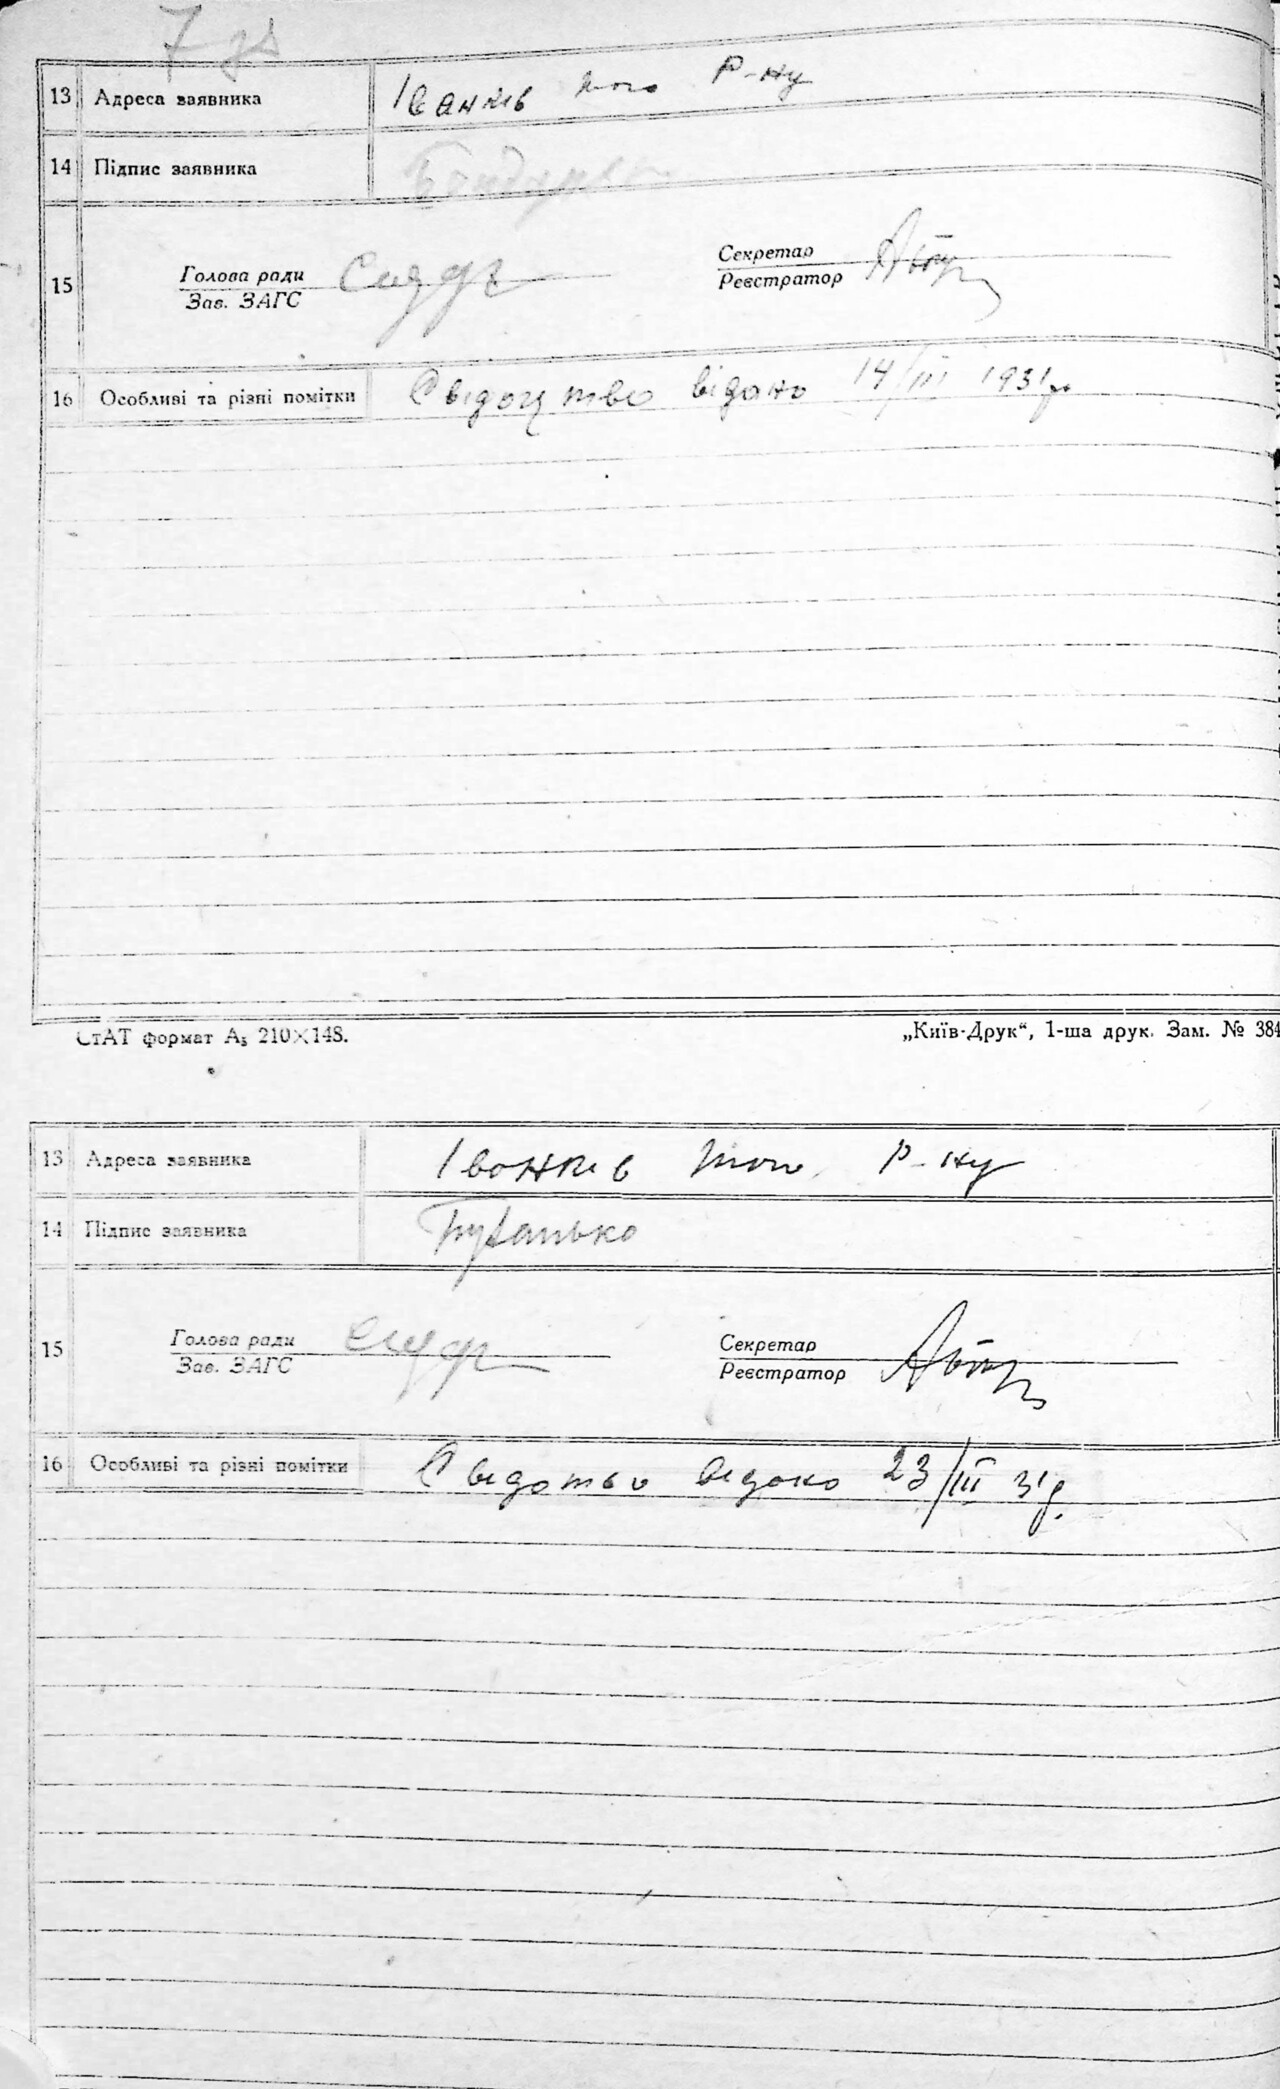 7 зв
13 Адреса заявника Іванків того Р-ну
14 Підпис заявника
15 Голова ради Секретар
Зав. ЗАГС Реєстратор
16 Особливі та різні помітки Свідоцтво відано 14/III 1931 р
СтАТ формат А₅ 210×148. „Київ-Друк“, 1-ша друк. Зам. № 384
13 Адреса заявника Іванків того Р-ну
14 Підпис заявника
15 Голова ради Секретар
Зав. ЗАГС Реєстратор
16 Особливі та різні помітки Свідотво відано 23/III 31 р.